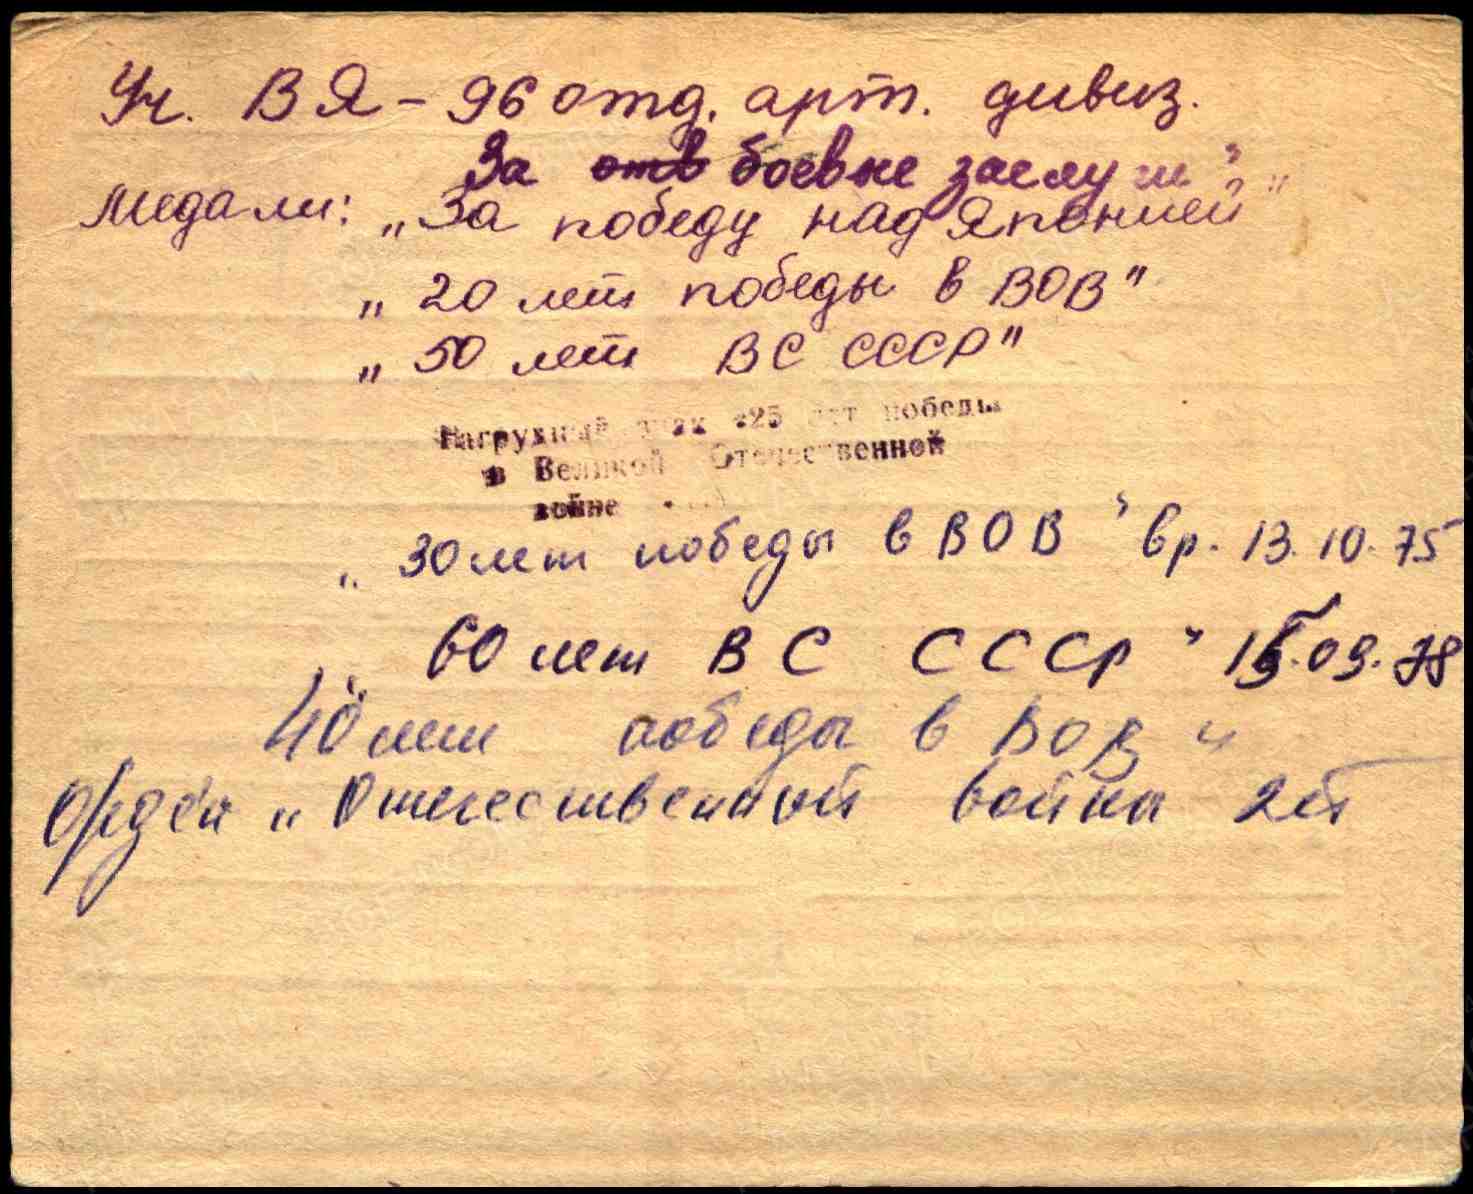 Уч. ВЯ – 96 отд. арт. дивиз.
За отв боевые заслуги"
Медали: „За победу над Японией"
„20 лет победы в ВОВ"
„50 лет ВС СССР"
Нагрудный знак «25 лет победы
в Великой Отечественной
войне
„30 лет победы в ВОВ" вр. 13.10.75
„60 лет ВС СССР" 15.09.78
„40 лет победы в ВОВ"
Орден „Отечественной война 2 ст